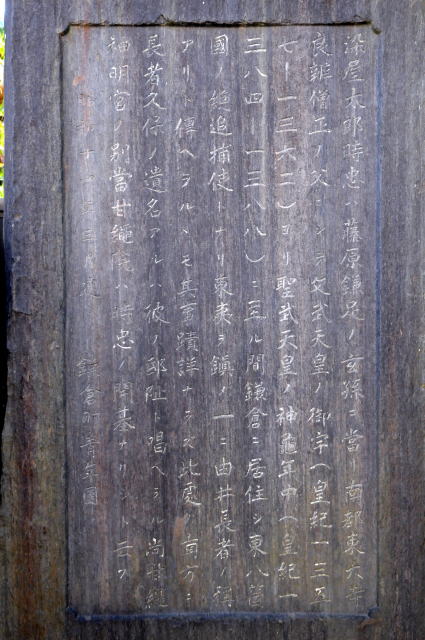 染屋太郎時忠ハ藤原鎌足ノ玄孫ニ當リ南都東大寺
良辨僧正ノ父ニシテ文武天皇ノ御宇(皇紀一三五
七ー一三六二)ヨリ聖武天皇ノ神龜年中(皇紀一
三八四ー一三八八)ニ至ル間鎌倉ニ居住シ東八箇
國ノ總追捕使トナリ東夷ヲ鎮メ一ニ由井長者ノ稱
アリト傳ヘラルヽモ其事蹟詳ナラズ此處ノ南方ニ
長者久保ノ遺名アルハ彼ノ邸阯ト唱ヘラル尚甘繩
神明宮ノ別當甘繩院ハ時忠ノ開基ナリシト云フ
三月建 鎌倉町青年團